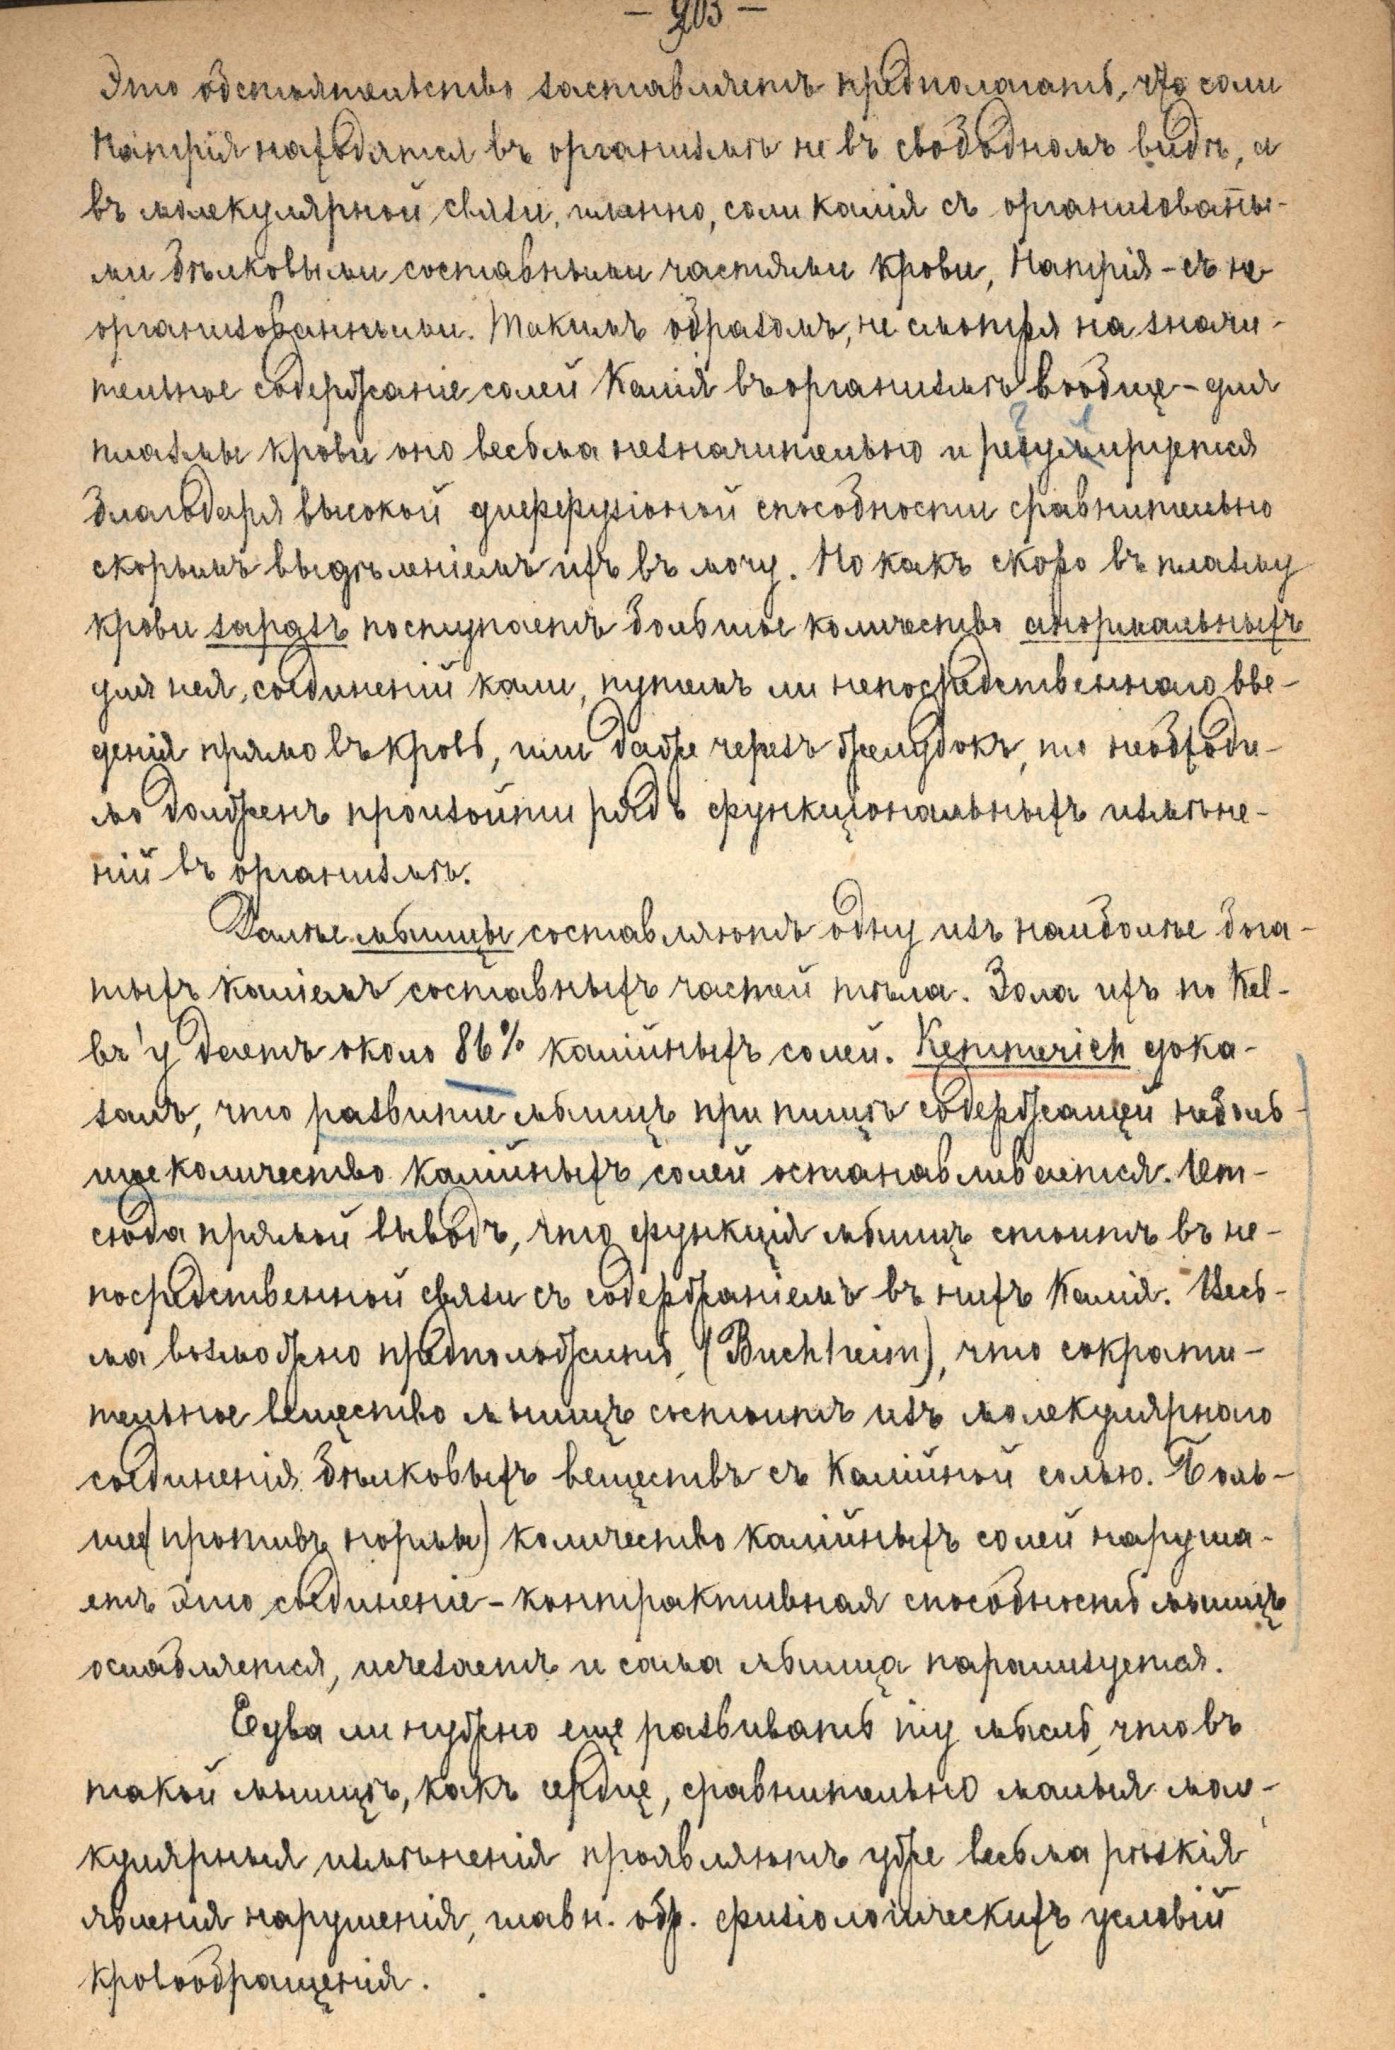 — 203 —
Это обстоятельство заставляетъ предполагать, что соли
Натрія находятся въ организмѣ не въ свободномъ видѣ, а
въ молекулярной связи, именно, соли калія съ организованны-
ми бѣлковыми составными частями крови, Натрія - съ не
организованными. Такимъ образомъ, не смотря на значи-
тельное содержаніе солей Калія въ организмѣ вообще - для
плазмы крови оно весьма незначительно и регулируется
благодаря высокой диффузіоной способности сравнительно
скорымъ выдѣленіемъ ихъ въ мочу. Но какъ скоро въ плазму
крови заразъ поступаетъ большое количество анормальныхъ
для нея, соединеній кали, путемъ ли непосредственнаго вве-
денія прямо въ кровь, или даже черезъ желудокъ, то необходи-
мо долженъ произойти рядъ функціональныхъ измѣне-
ній въ организмѣ.
Далѣе мышцы составляютъ одну изъ наиболѣе бога-
тыхъ каліемъ составныхъ частей тѣла. Зола ихъ по Kel-
въ'у даетъ около 86% калійныхъ солей. Kemmerich дока-
залъ, что развитие мышцъ при пищѣ содержащей неболь-
шое количество калійныхъ солей останавливается. От-
сюда прямой выводъ, что функція мышцъ стоитъ въ не-
посредственной связи съ содержаніемъ въ нихъ Калія. Весь-
ма возможно предположить, (Buchheim), что сократи-
тельное вещество мышцъ состоитъ изъ молекулярного
соединенія бѣлковыхъ веществъ съ Калійной солью. Боль-
шее (противъ нормы) количество калійныхъ солей наруша-
етъ это соединеніе - контрактивная способность мышцъ
ослабляется, исчезаетъ и сама мышца парализуется.
Едва ли нужно еще развивать ту мысль, что въ
такой мышцѣ, какъ сердце, сравнительно малыя моле-
кулярныя измѣненія проявляютъ уже весьма рѣзкія
явленія нарушенія, главн. обр. физіологическихъ условій
кровообращенія.